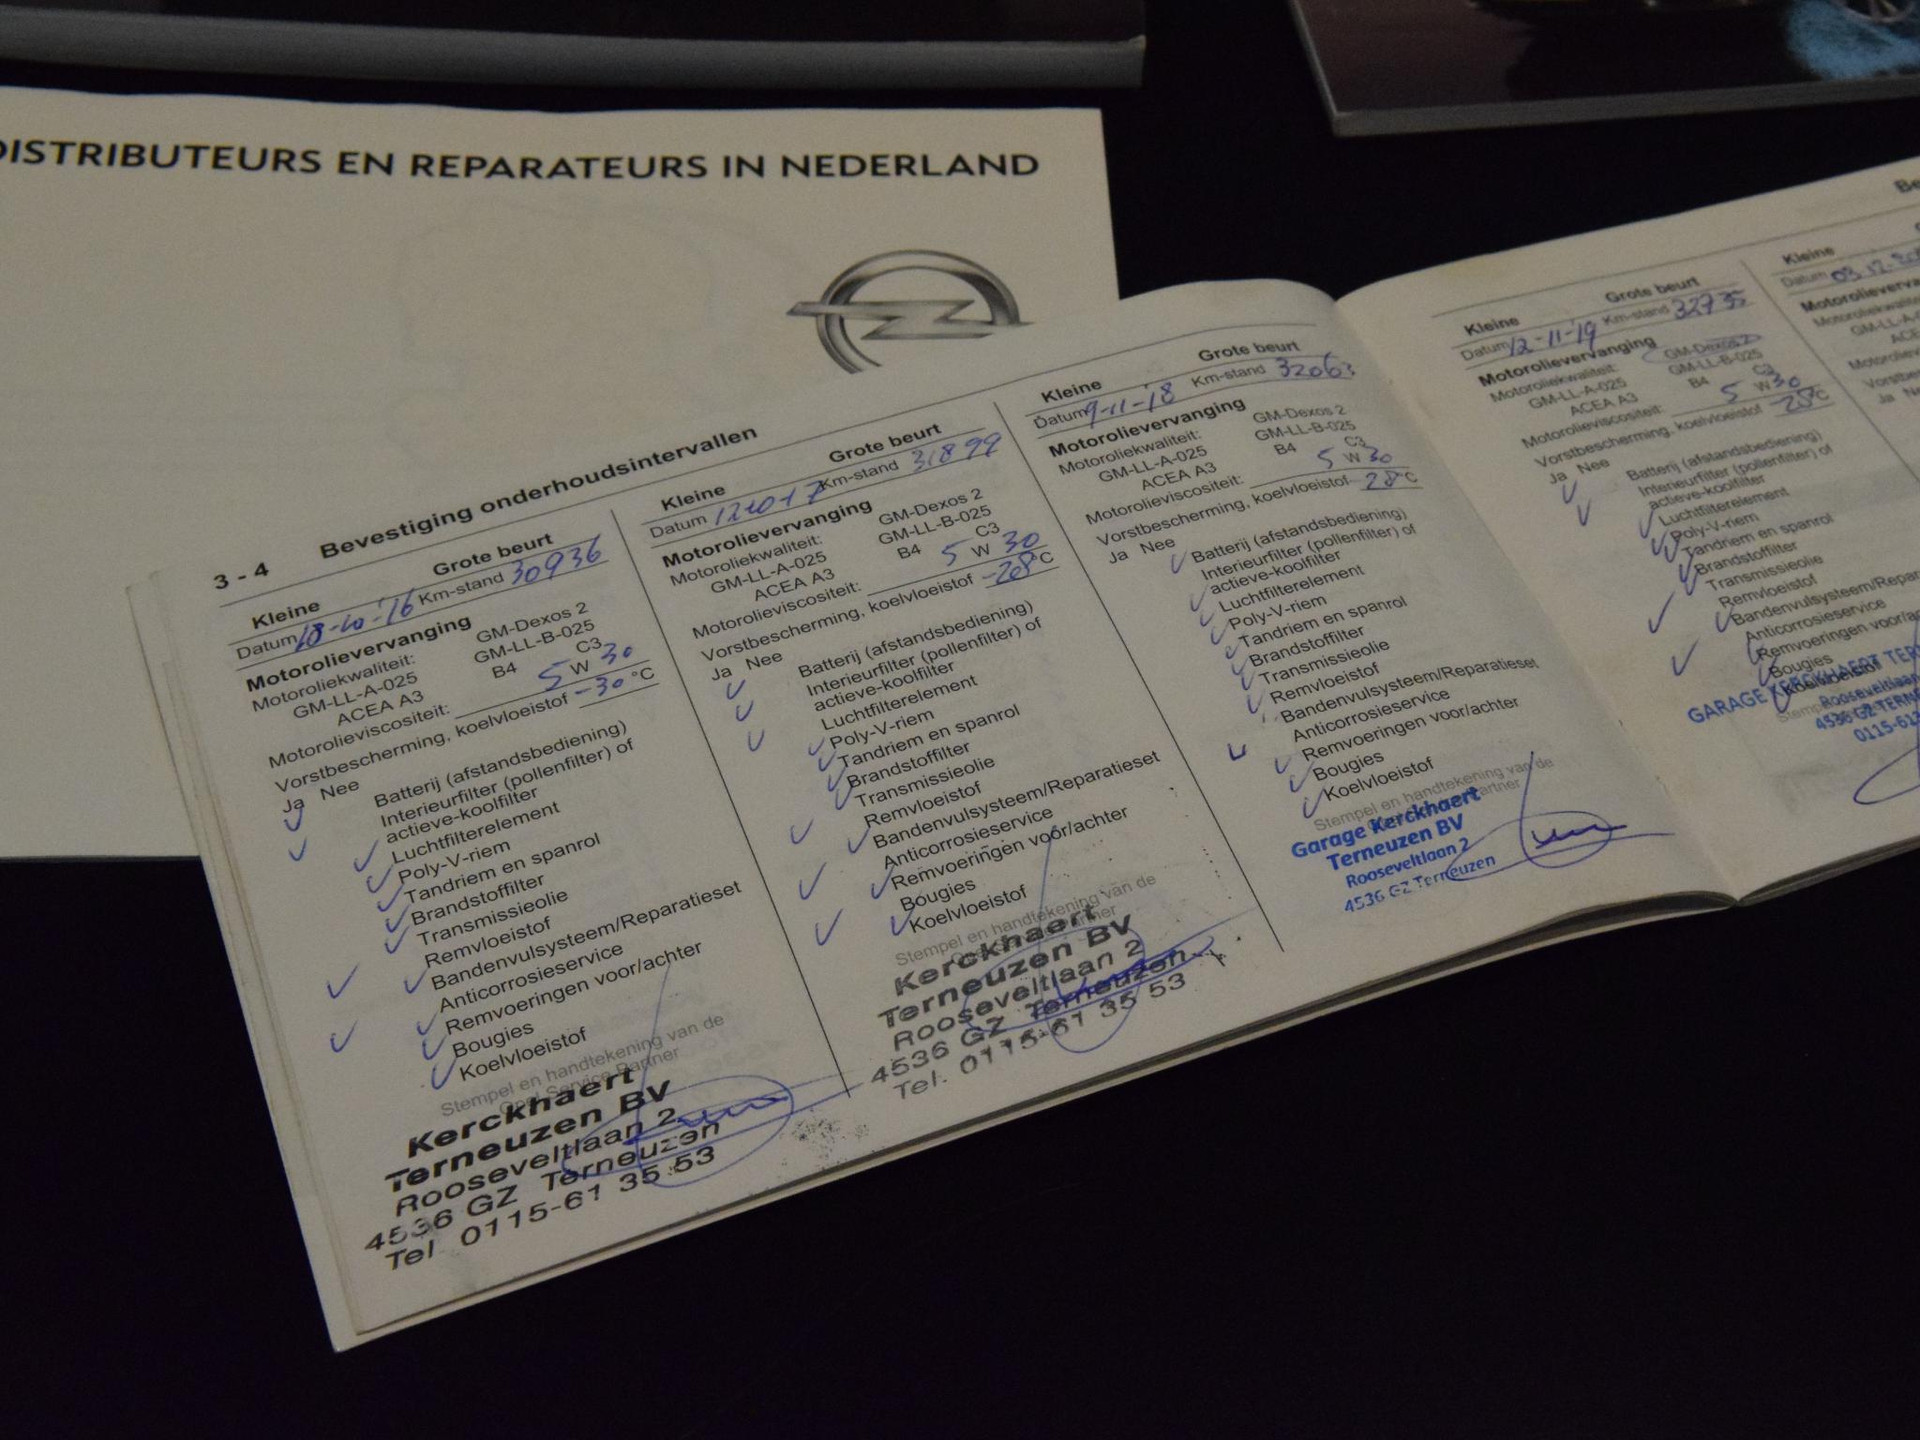 DISTRIBUTEURS EN REPARATEURS IN NEDERLAND
3 - 4 Bevestiging onderhoudsintervallen
Kleine Grote beurt
Datum 18-10-'16 Km-stand 30936
Motorolievervanging
Motoroliekwaliteit: GM-Dexos 2
GM-LL-A-025 GM-LL-B-025
ACEA A3 B4 C3
Motorolieviscositeit: 5 W 30
Vorstbescherming, koelvloeistof -30 °C
Ja Nee
Batterij (afstandsbediening)
Interieurfilter (pollenfilter) of
actieve-koolfilter
Luchtfilterelement
Poly-V-riem
Tandriem en spanrol
Brandstoffilter
Transmissieolie
Remvloeistof
Bandenvulsysteem/Reparatieset
Anticorrosieservice
Remvoeringen voor/achter
Bougies
Koelvloeistof
Stempel en handtekening van de
Opel Service Partner
Kerckhaert
Terneuzen BV
Rooseveltlaan 2
4536 GZ Terneuzen
Tel. 0115-61 35 53
Kleine Grote beurt
Datum Km-stand 31899
Motorolievervanging
Motoroliekwaliteit: GM-Dexos 2
GM-LL-A-025 GM-LL-B-025
ACEA A3 B4 C3
Motorolieviscositeit: 5 W 30
Vorstbescherming, koelvloeistof -28 °C
Ja Nee
Batterij (afstandsbediening)
Interieurfilter (pollenfilter) of
actieve-koolfilter
Luchtfilterelement
Poly-V-riem
Tandriem en spanrol
Brandstoffilter
Transmissieolie
Remvloeistof
Bandenvulsysteem/Reparatieset
Anticorrosieservice
Remvoeringen voor/achter
Bougies
Koelvloeistof
Stempel en handtekening van de
Kerckhaert
Terneuzen BV
Rooseveltlaan 2
4536 GZ Terneuzen
Tel. 0115-61 35 53
Kleine Grote beurt
Datum 9-11-'18 Km-stand 32063
Motorolievervanging
Motoroliekwaliteit: GM-Dexos 2
GM-LL-A-025 GM-LL-B-025
ACEA A3 B4 C3
Motorolieviscositeit: 5 W 30
Vorstbescherming, koelvloeistof 28 °C
Ja Nee
Batterij (afstandsbediening)
Interieurfilter (pollenfilter) of
actieve-koolfilter
Luchtfilterelement
Poly-V-riem
Tandriem en spanrol
Brandstoffilter
Transmissieolie
Remvloeistof
Bandenvulsysteem/Reparatieset
Anticorrosieservice
Remvoeringen voor/achter
Bougies
Koelvloeistof
Stempel en handtekening van de
Garage Kerckhaert
Terneuzen BV
Rooseveltlaan 2
4536 GZ Terneuzen
Kleine Grote beurt
Datum 12-11-'19 Km-stand 32735
Motorolievervanging
Motoroliekwaliteit: GM-Dexos 2
GM-LL-A-025 GM-LL-B-025
ACEA A3 B4 C3
Motorolieviscositeit: 5 W 30
Vorstbescherming, koelvloeistof -28 °C
Ja Nee
Batterij (afstandsbediening)
Interieurfilter (pollenfilter) of
actieve-koolfilter
Luchtfilterelement
Poly-V-riem
Tandriem en spanrol
Brandstoffilter
Transmissieolie
Remvloeistof
Bandenvulsysteem/Repara
Anticorrosieservice
Remvoeringen voor/a
Bougies
Koelvloeistof
GARAGE KERCKHAERT TER
Rooseveltlaan
4536 GZ TERN
0115-61
Be
Kleine
Datum 03-12-20
Motorolieverva
Motoroliekwalite
GM-LL-A-0
ACE
Ja